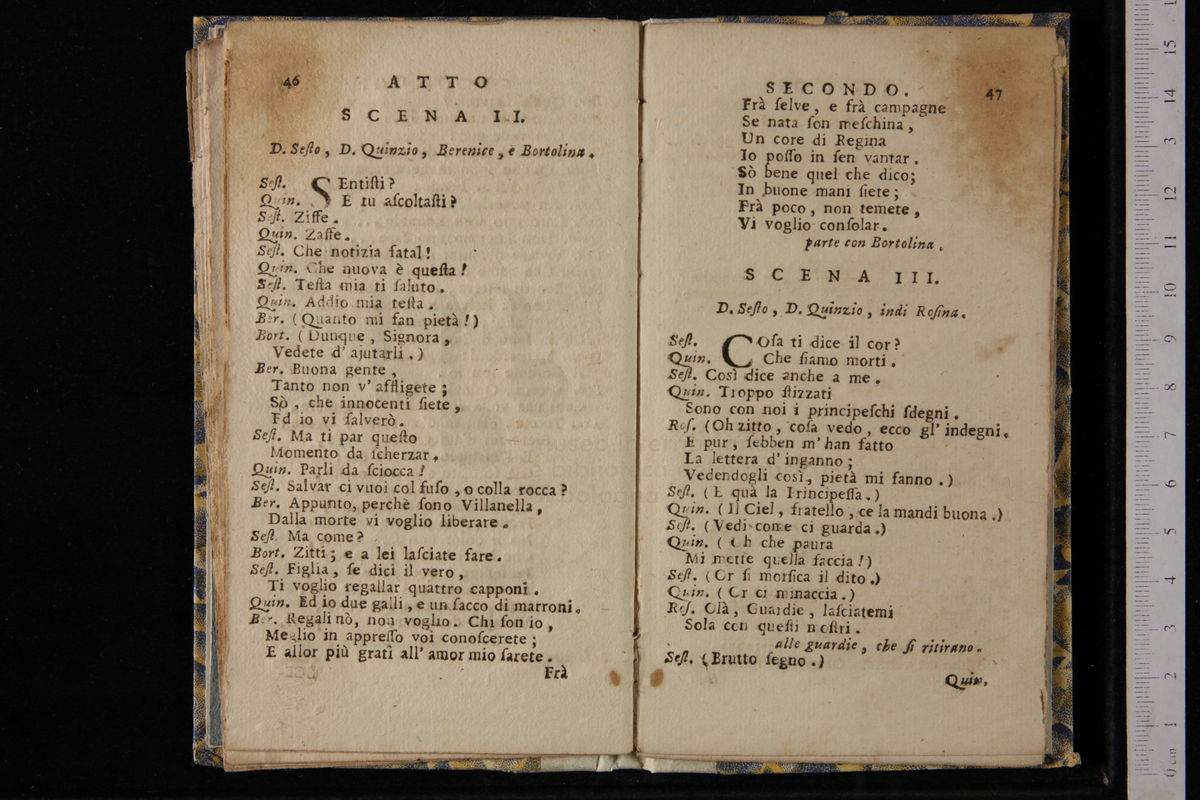 46 ATTO
SCENA II.
D. Seſto, D. Quinzio, Berenice, e Bortolina.
Seſt. SEntiſti?
Quin. E tu aſcoltaſti?
Seſt. Ziffe.
Quin. Zaffe.
Seſt. Che notizia fatal!
Quin. Che nuova è queſta!
Seſt. Teſta mia ti ſaluto.
Quin. Addio mia teſta.
Ber. (Quanto mi fan pietà!)
Bort. (Dunque, Signora,
Vedete d' ajutarli.)
Ber. Buona gente,
Tanto non v' affligete;
Sò, che innocenti ſiete,
Ed io vi ſalverò.
Seſt. Ma ti par queſto
Momento da ſcherzar.
Quin. Parli da ſciocca!
Seſt. Salvar ci vuoi col fuſo, o colla rocca?
Ber. Appunto, perchè ſono Villanella,
Dalla morte vi voglio liberare.
Seſt. Ma come?
Bort. Zitti; e a lei laſciate fare.
Seſt. Figlia, ſe dici il vero,
Ti voglio regallar quattro capponi.
Quin. Ed io due galli, e un ſacco di marroni.
Ber. Regali nò, non voglio. Chi ſon io,
Meglio in appreſſo voi conoſcerete;
E allor più grati all' amor mio ſarete.
Frà
SECONDO. 47
Frà ſelve, e frà campagne
Se nata ſon meſchina,
Un core di Regina
Io poſſo in ſen vantar.
Sò bene quel che dico;
In buone mani ſiete;
Frà poco, non temete,
Vi voglio conſolar.
parte con Bortolina.
SCENA III.
D. Seſto, D. Quinzio, indi Roſina.
Seſt. COſa ti dice il cor?
Quin. Che ſiamo morti.
Seſt. Così dice anche a me.
Quin. Troppo ſtizzati
Sono con noi i principeſchi ſdegni.
Roſ. (Oh zitto, coſa vedo, ecco gl' indegni.
E pur, ſebben m' han fatto
La lettera d' inganno;
Vedendogli così, pietà mi fanno.)
Seſt. (E quà la Principeſſa.)
Quin. (Il Ciel, fratello, ce la mandi buona.)
Seſt. (Vedi come ci guarda.)
Quin. (Oh che paura
Mi mette quella faccia!)
Seſt. (Or ſi morſica il dito.)
Quin. (Or ci minaccia.)
Roſ. Olà, Guardie, laſciatemi
Sola con queſti moſtri.
alle guardie, che ſi ritirano.
Seſt. (Brutto ſegno.)
Quin.
0 cm 1 2 3 4 5 6 7 8 9 10 11 12 13 14 15